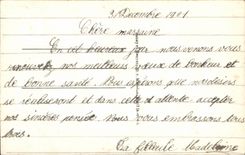 3 Décembre 1901
Chère marraine
En cet heureux jour nous venons vous
nos meilleurs vœux de bonheur et
de bonne santé. Nous espérons que nos désirs
se réaliseront et dans cette attente accepter
nos sincères pensées. Nous vous embrassons tous
bons.
Ta filleule Madeleine